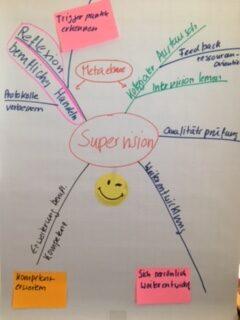 Trigger punkte
erkennen
Reflexion
berufliches Handeln
Metaebene
Kollegialer Austausch
Feedback
ressourcen-
orientiert
Intervision lernen
Protokolle
verbessern
Supervision
Qualitätsprüfung
Erweiterung berufl.
Kompetenz
Weiterentwicklung
Kompetenz
erweitern
Sich persönlich
weiterentwickeln